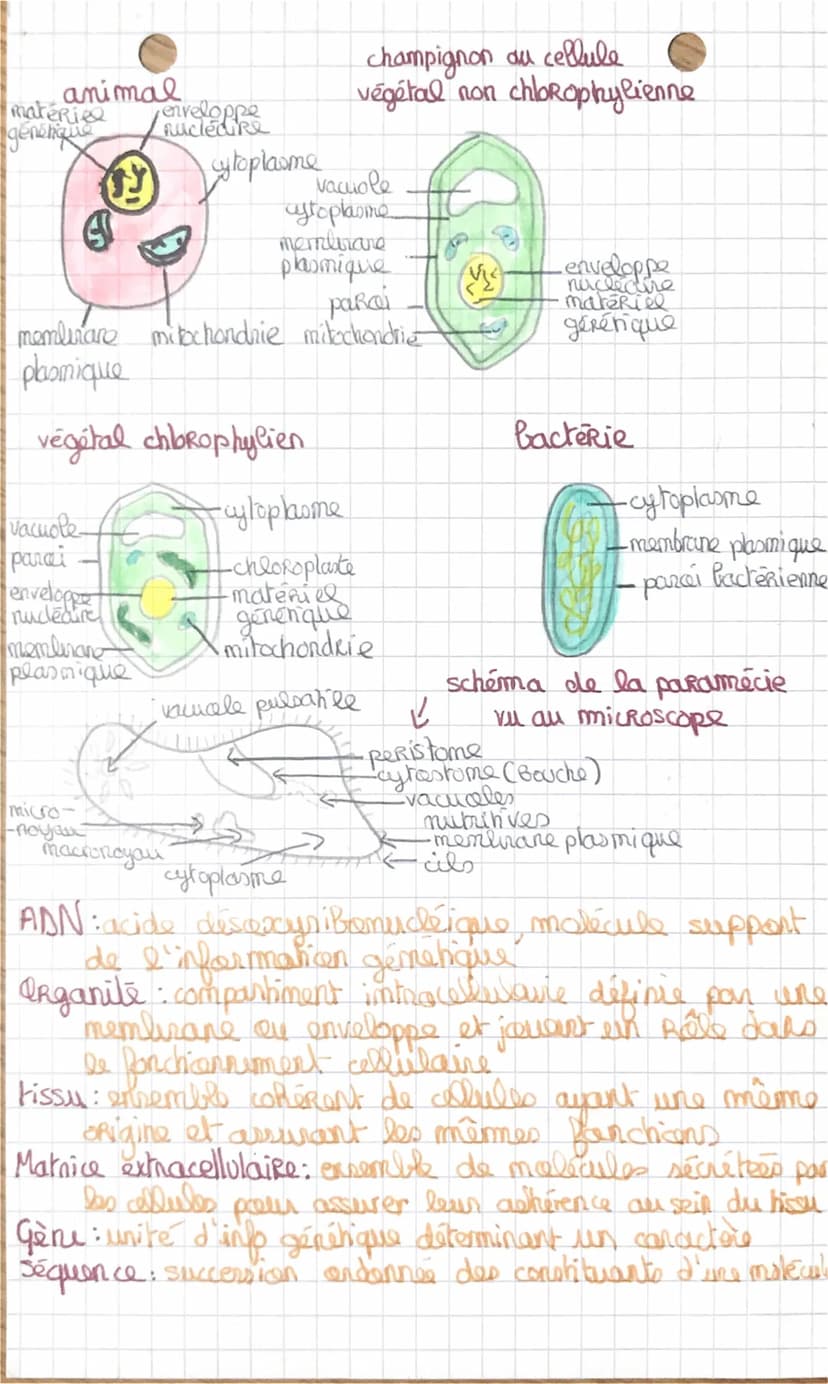 champignon ou cellule
végétal non chlorophylienne
animal
matériel
génétique
enveloppe
nucléaire
cytoplasme
membrane
plasmique
mitochondrie
vacuole
cytoplasme
membrane
plasmique
paroi
mitochondrie
enveloppe
nucléaire
matériel
génétique
végétal chlorophylien
vacuole
paroi
enveloppe
nucléaire
membrane
plasmique
cytoplasme
chloroplaste
matériel
génétique
mitochondrie
bactérie
cytoplasme
membrane plasmique
paroi bactérienne
schéma de la paramécie
vu au microscope
vacuole pulsatile
micro-
-noyau
macronoyau
cytoplasme
peristome
cytostome (bouche)
vacuoles
nutritives
membrane plasmique
cils
ADN : acide désoxyribonucléique, molécule support
de l'information génétique
Organite : compartiment intracellulaire définie par une
membrane ou enveloppe et jouant un rôle dans
le fonctionnement cellulaire
tissu : ensemble cohérent de cellules ayant une même
origine et assurant les mêmes fonctions
Matrice extracellulaire : ensemble de molécules sécrétées par
les cellules pour assurer leur adhérence au sein du tissu
Gène : unité d'info génétique déterminant un caractère
Séquence : succession ordonnée des constituants d'une molécul